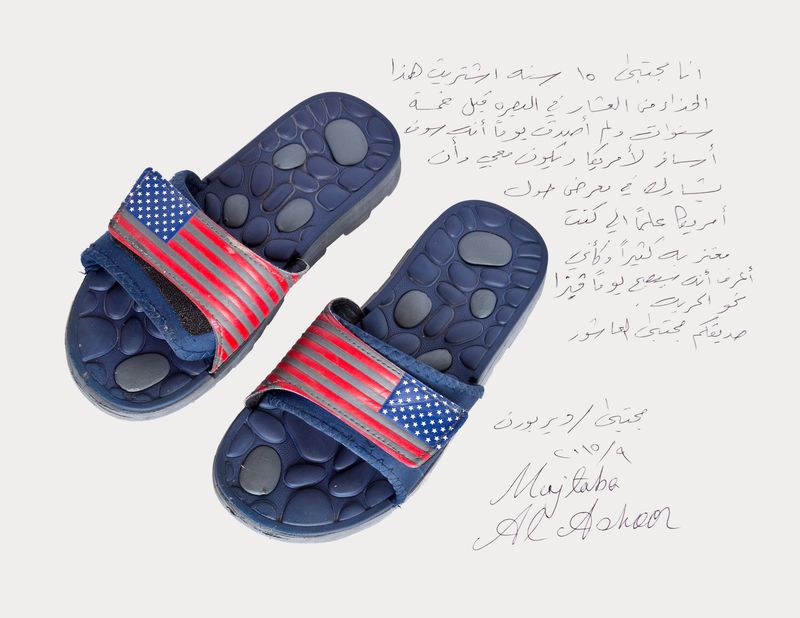 انا مجتبى ١٥ سنه اشتريت هذا
الحذاء من العشار في البصره قبل خمسة
سنوات ولم أصدق يوماً أنه سوف
أسافر لأمريكا ويكون معي وأن
يشارك في معرض حول
أمريكا علماً اني كنت
معتز به كثيراً وكأني
أعرف أنه سيصبح يوماً
نحو الحريه .
صديقكم مجتبى العاشور
مجتبى / ديربورن
٢٠١٥/٩
Mujtaba
Al Ashoor